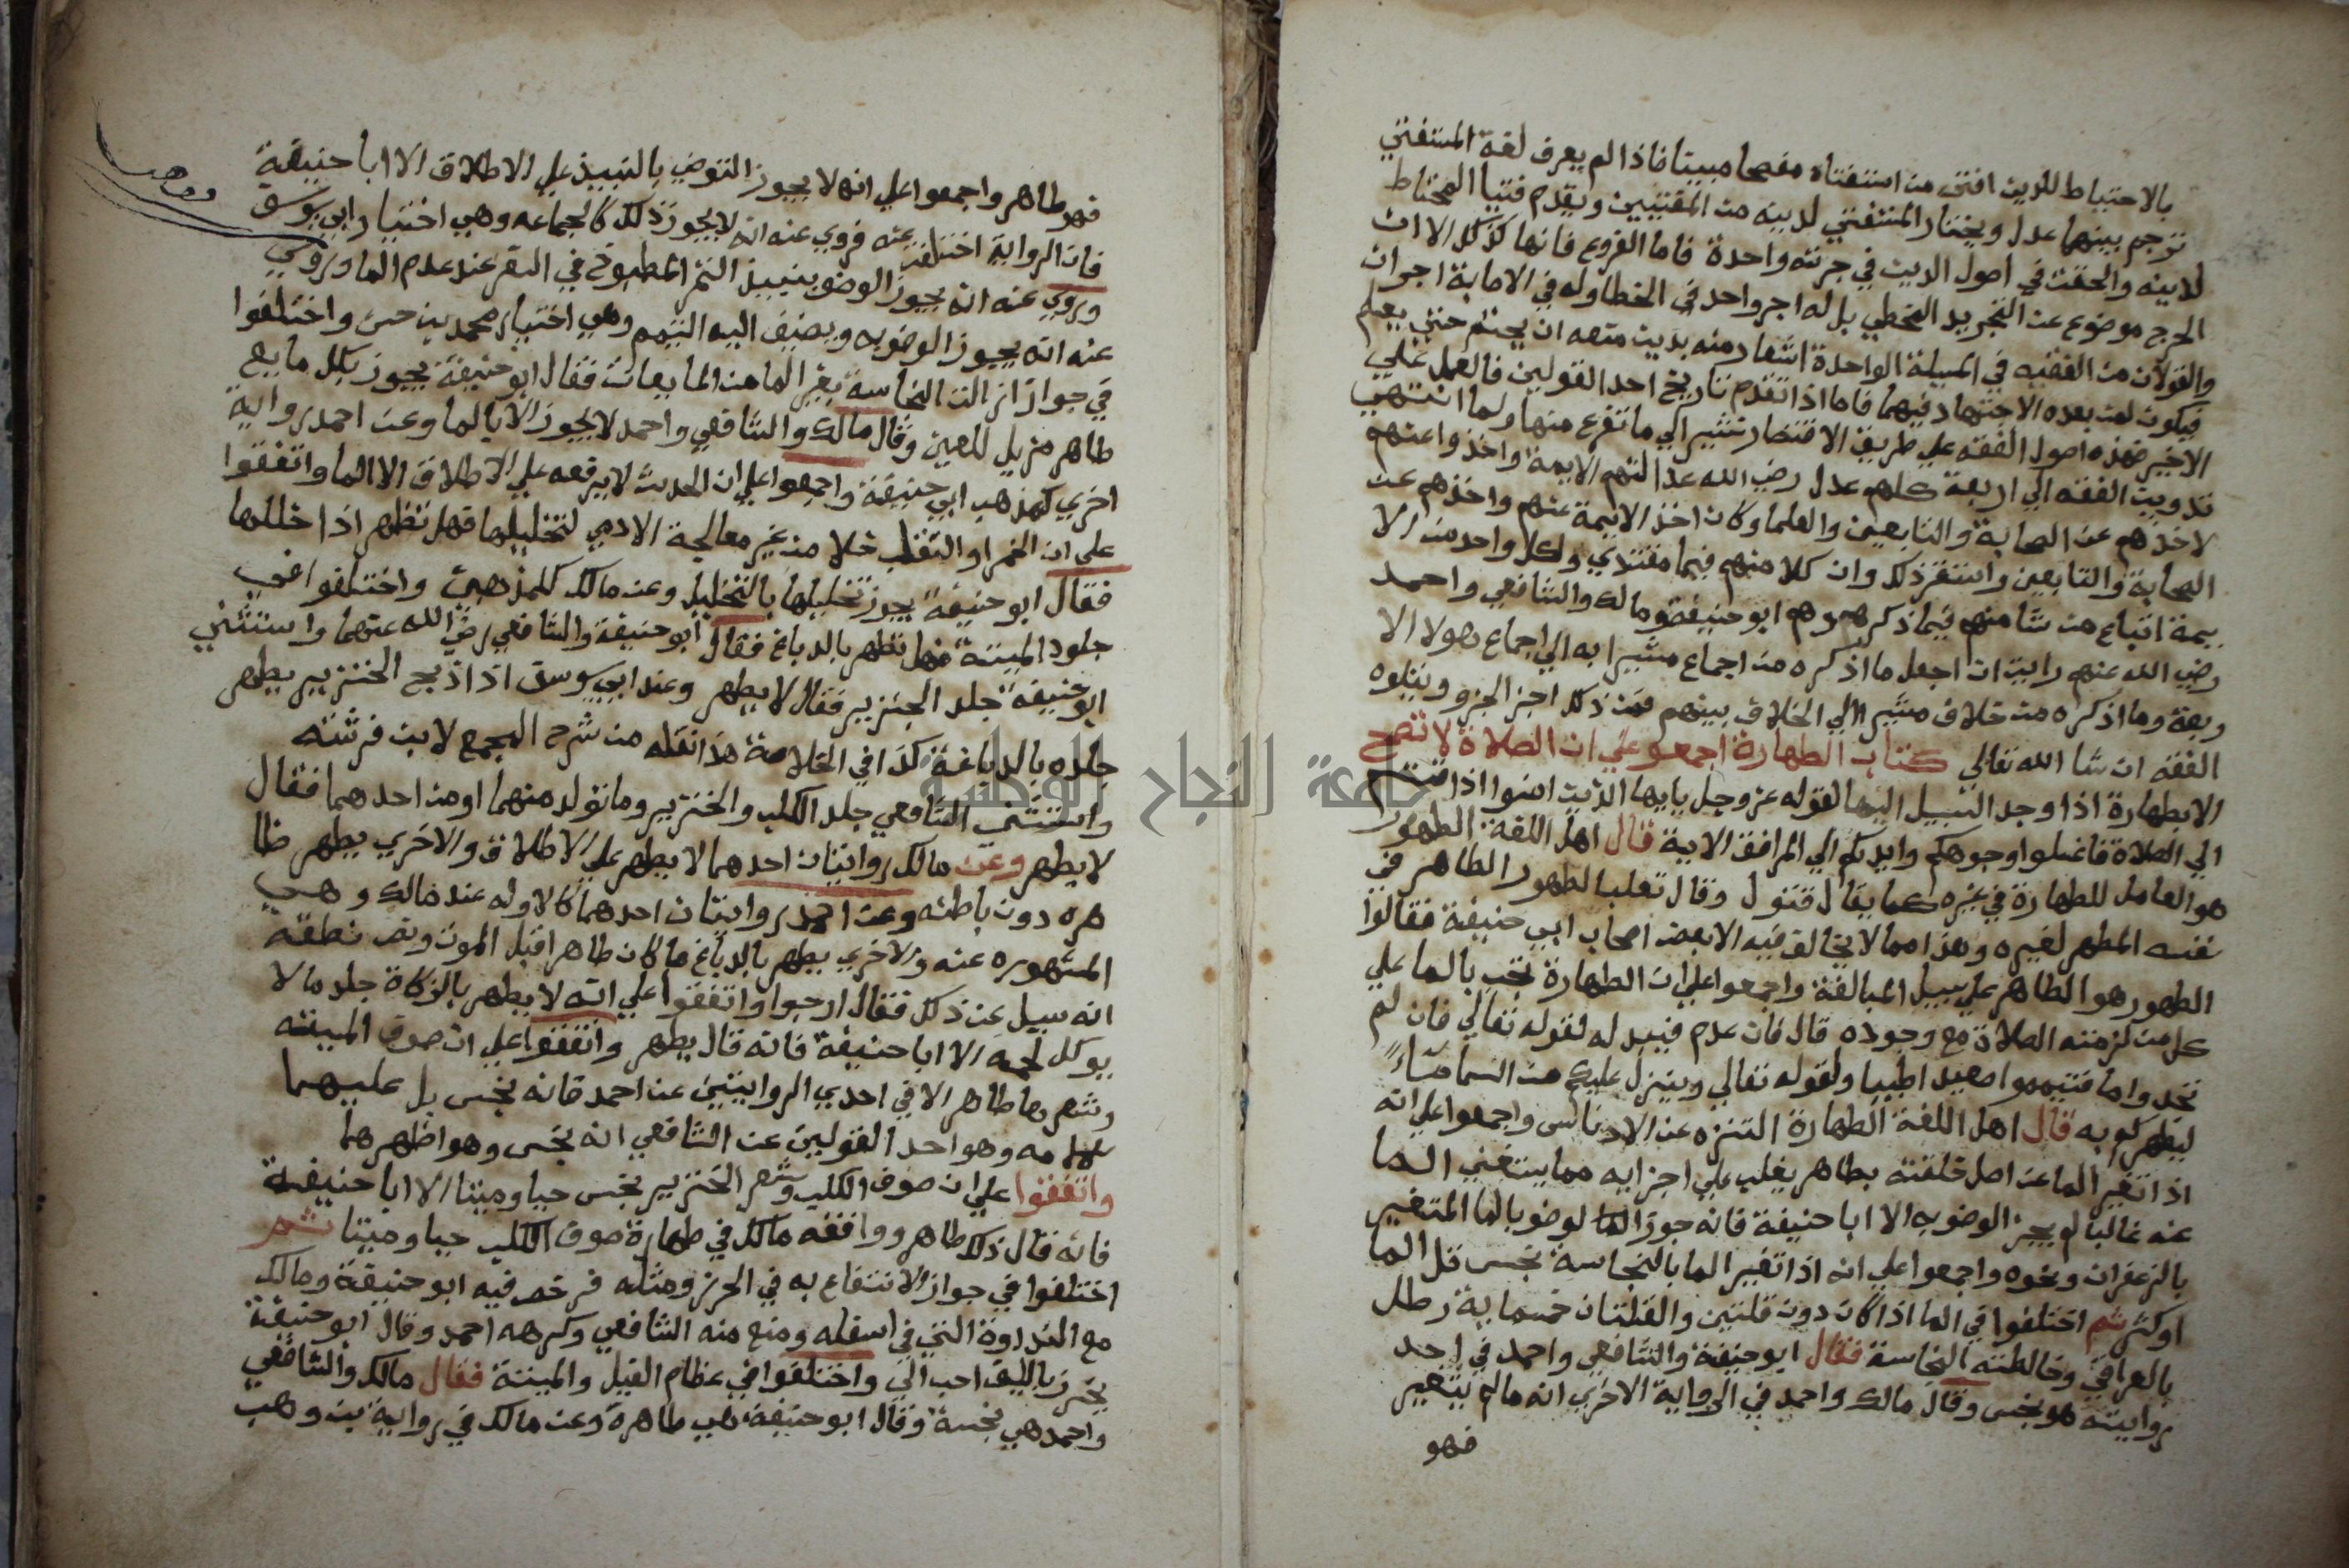 بالاحتياط للدين افتى من استفتاه مفصحا مبينا فاذا لم يعرف لغة المستفتي
ترجم بينهما عدل ويختار المستفتي لدينه من المفتيين ويقدم فتيا المحتاط
لدينه والحقت في اصول الدين في جزئه واحدة فاما الفروع فانها كذلك الا ان
الحرج موضوع عن المخطي بل له اجر واحد في الخطا وله في الاصابة اجران
والقولان من الفقيه في المسيلة الواحدة اشعار منه بدين متعه ان يحتم حتى يعلم
فيكون لمن بعده الاجتهاد فيهما فاما اذا تقدم تاريخ احد القولين فالعمل علي
الاخير فهذه اصول الفقه علي طريق الاختصار تشير الي ما تفرع منها ولما انتهي
تدوين الفقه الي اربعة كلهم عدل رضي الله عدالتهم الايمة واخذوا عنهم
لاخذهم عن الصحابة والتابعين والعلما وكان اخذ الايمة عنهم واخذهم عن
الصحابة والتابعين واستقر ذلك وان كلا منهم فيما مقتدي ولكل واحد من الا
يمة اتباع من شا منهم فيما ذكر هم وهم ابو حنيفة ومالك والشافعي واحمد
رضي الله عنهم رايت ان اجعل ما اذكره من اجماع مشيرا به الي اجماع هولا الا
ربعة وما اذكره من خلاف مشيرا الي الخلاف بينهم فمن ذلك اخر الجزو ويتلوه
الفقه ان شا الله تعالي كتاب الطهارة اجمعو علي ان الصلاة لا تصح
الا بطهارة اذا وجد السبيل اليها لقوله عز وجل يايها الذين امنوا اذا قمتم
الي الصلاة فاغسلوا وجوهكم وايديكم الي المرافق الاية قال اهل اللغة الطهور
هو العامل للطهارة في غيره كما يقال قتول وقال ثعلب الطهور الطاهر في
نفسه المطهر لغيره وهذا مما لا يخالف فيه الا بعض اصحاب ابي حنيفة فقالوا
الطهور هو الطاهر علي سبيل المبالغة واجمعوا علي ان الطهارة تجب بالما علي
كل من لزمته الصلاة مع وجوده قال فان عدم فبدله لقوله تعالي فان لم
تجدوا ما فتيمموا صعيدا طيبا ولقوله تعالي وينزل عليكم من السما ماءً
ليطهركم به قال اهل اللغة الطهارة التنزه عن الادناس واجمعوا علي انه
اذا تغير الما عن اصل خلقته بطاهر يغلب علي اجزايه مما يستغني الما
عنه غالبا لم يجز الوضو به الا ابا حنيفة فانه جوز الوضو بالما المتغير
بالزعفران ونحوه واجمعوا علي انه اذا تغير الما بالنجاسة نجس قل الما
او كثر ثم اختلفوا في الما اذا كان دون قلتين والقلتان خمسماية رطل
بالعراقي وخالطته النجاسة فقال ابو حنيفة والشافعي واحمد في احد
روايته هو نجس وقال مالك واحمد في الرواية الاخري انه مالم يتغير
فهو
فهو طاهر واجمعوا علي انه لا يجوز التوضي بالنبيذ علي الاطلاق الا ابا حنيفة
فان الرواية اختلفت عنه فروي عنه انه لا يجوز ذلك كالجماعه وهي اختيار ابي يوسف
وروي عنه انه يجوز الوضو بنبيذ التمر المطبوخ في السفر عند عدم الما وروي
عنه انه يجوز الوضو به ويضيف اليه التيمم وهي اختيار محمد بن حسن واختلفوا
في جواز ازالت النجاسة بغير الما من المايعات فقال ابو حنيفة يجوز بكل مايع
طاهر مزيل للعين وقال مالك والشافعي واحمد لا يجوز الا بالما وعن احمد رواية
اخري كمذهب ابي حنيفة واجمعوا علي ان الحدث لا يرفعه علي الاطلاق الا الما واتفقوا
علي ان الخمر اذا انقلب خلا من غير معالجة الادمي لتخليلها فهل تطهر اذا خللها
فقال ابو حنيفة يجوز تخليلها بالتخليل وعن مالك كالمذهبين واختلفوا في
جلود الميتة هل تطهر بالدباغ فقال ابو حنيفة والشافعي رضي الله عنهما واستثني
ابو حنيفة جلد الخنزير فقال لا يطهر وعند ابي يوسف اذا ذبح الخنزير يطهر
جلده بالدباغة كذا في الخلاصة هذا نقله من شرح المجمع لابن فرشته
واستثني الشافعي جلد الكلب والخنزير وما تولد منهما او من احدهما فقال
لا يطهر وعن مالك روايتان احدهما لا يطهر علي الاطلاق والاخري يطهر ظا
هره دون باطنه وعن احمد روايتان احدهما كالاوله عند مالك وهي
المشهوره عنه والاخري يطهر بالدباغ ما كان طاهرا قبل الموت ونص نطقه
انه سيل عن ذلك فقال ارجوا واتفقوا علي انه لا يطهر بالزكاة جلد مالا
يوكل لحمه الا ابا حنيفة فانه قال يطهر واتفقوا علي ان صوف الميتة
وشعرها طاهر الا في احدي الروايتين عن احمد فانه نجس بل عليهما
وهو احد القولين عن الشافعي انه نجس وهو اظهرهما
واتفقوا علي ان صوف الكلب وشعر الخنزير نجس حيا وميتا الا ابا حنيفة
فانه قال ذلك طاهر ووافقه مالك في طهارة صوف الكلب حيا وميتا ثم
اختلفوا في جواز الانتفاع به في الخرز ومثله فرخص فيه ابو حنيفة ومالك
مع النداوة التي في اسفله ومنع منه الشافعي وكرهه احمد وقال ابو حنيفة
يخرز بالليف احب الي واختلفوا في عظام الفيل والميتة فقال مالك والشافعي
واحمد هي نجسة وقال ابو حنيفة هي طاهرة وعن مالك في رواية بن وهب
جامعة النجاح الوطنية